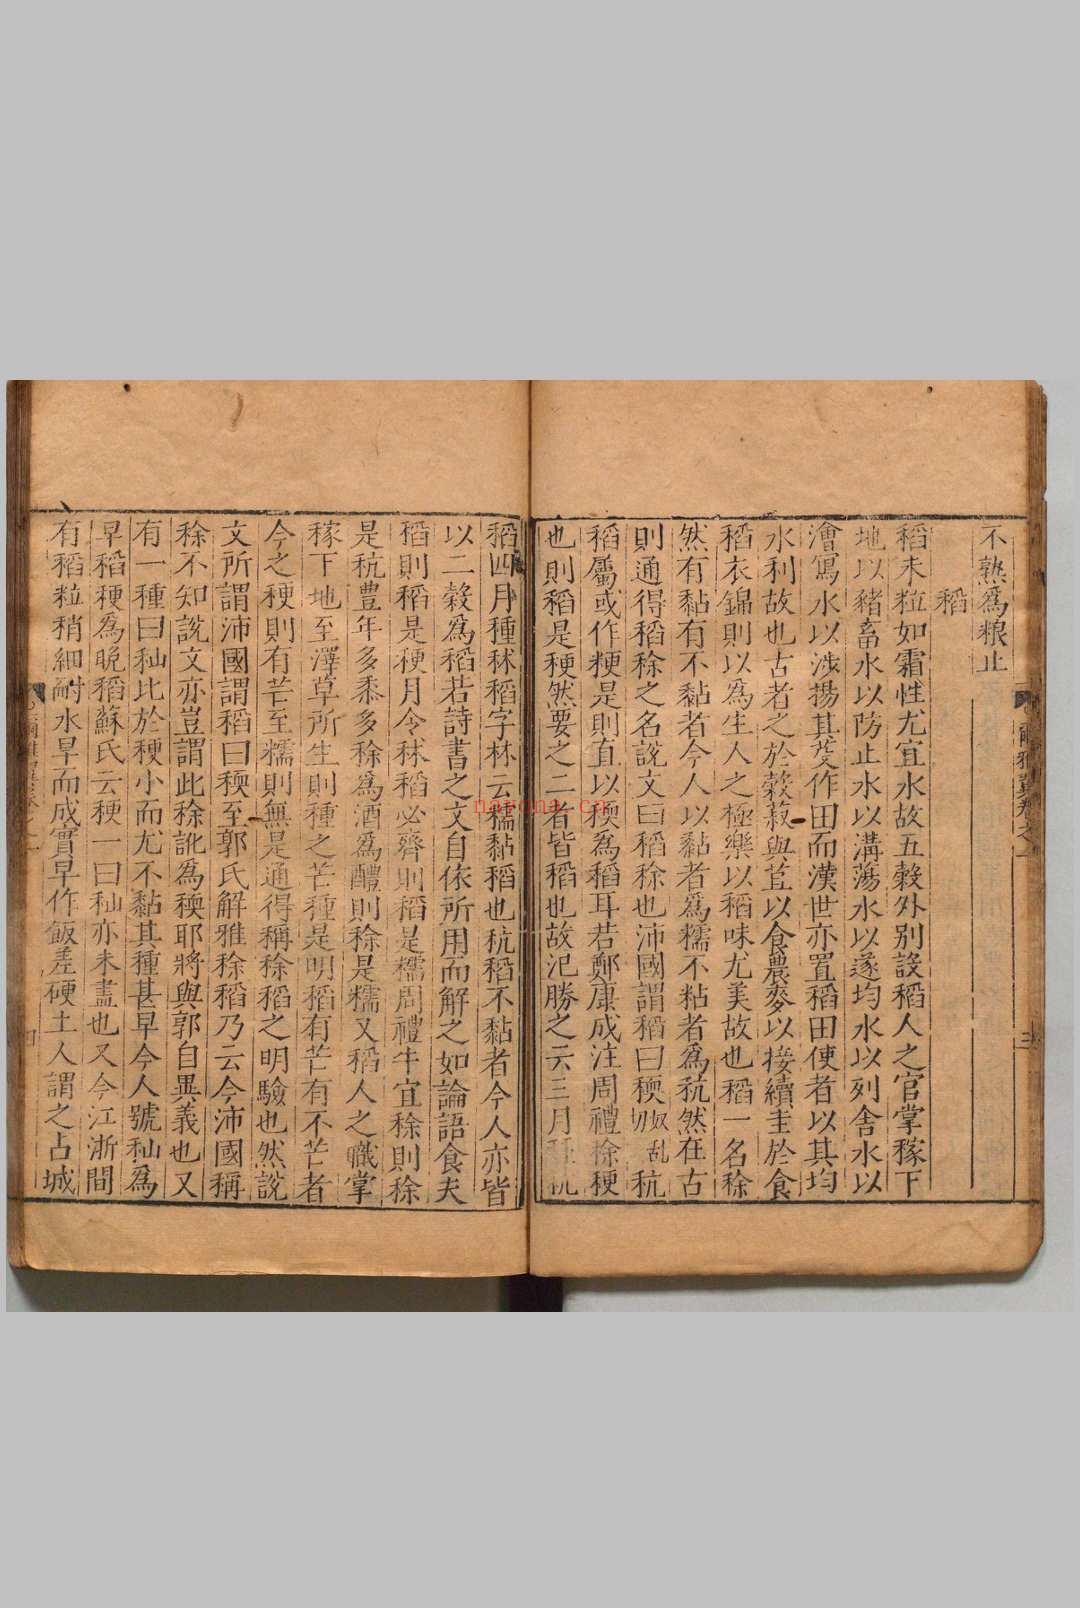 不熟為粮止
稻
稻米粒如霜性尤宜水故五穀外別設稻人之官掌稼下
地以豬畜水以防止水以溝蕩水以遂均水以列舍水以
澮寫水以涉揚其芟作田而漢世亦置稻田使者以其均
水利故也古者之於穀菽與苴以食農麥以接續圭於食
稻衣錦則以為生人之極樂以稻味尤美故也稻一名稌
然有黏有不黏者今人以黏者為糯不粘者為秔然在古
則通得稻稌之名說文曰稻稌也沛國謂稻曰稬奴亂切秔
稻屬或作粳是則直以稬為稻耳若鄭康成注周禮稌粳
也則稻是粳然要之二者皆稻也故氾勝之云三月種秔
稻四月種秫稻字林云糯黏稻也秔稻不黏者今人亦皆
以二穀為稻若詩書之文自依所用而解之如論語食夫
稻則稻是稉月令秫稻必齊則稻是糯周禮牛宜稌則稌
是秔豊年多黍多稌為酒為醴則稌是糯又稻人之職掌
稼下地至澤草所生則種之芒種是明稻有芒有不芒者
今之稉則有芒至糯則無是通得稱稌稻之明驗也然說
文所謂沛國謂稻曰稬至郭氏解雅稌稻乃云今沛國稱
稌不知說文亦豈謂此稌訛為稬耶將與郭自異義也又
有一種曰秈比於稉小而尤不黏其種甚早今人號秈為
早稻稉為晚稻蘇氏云稉一曰秈亦未盡也又今江浙間
有稻粒稍細耐水旱而成實早作飯差硬土人謂之占城
爾雅翼卷之一
三
爾雅翼卷之一
四
nayona.cn